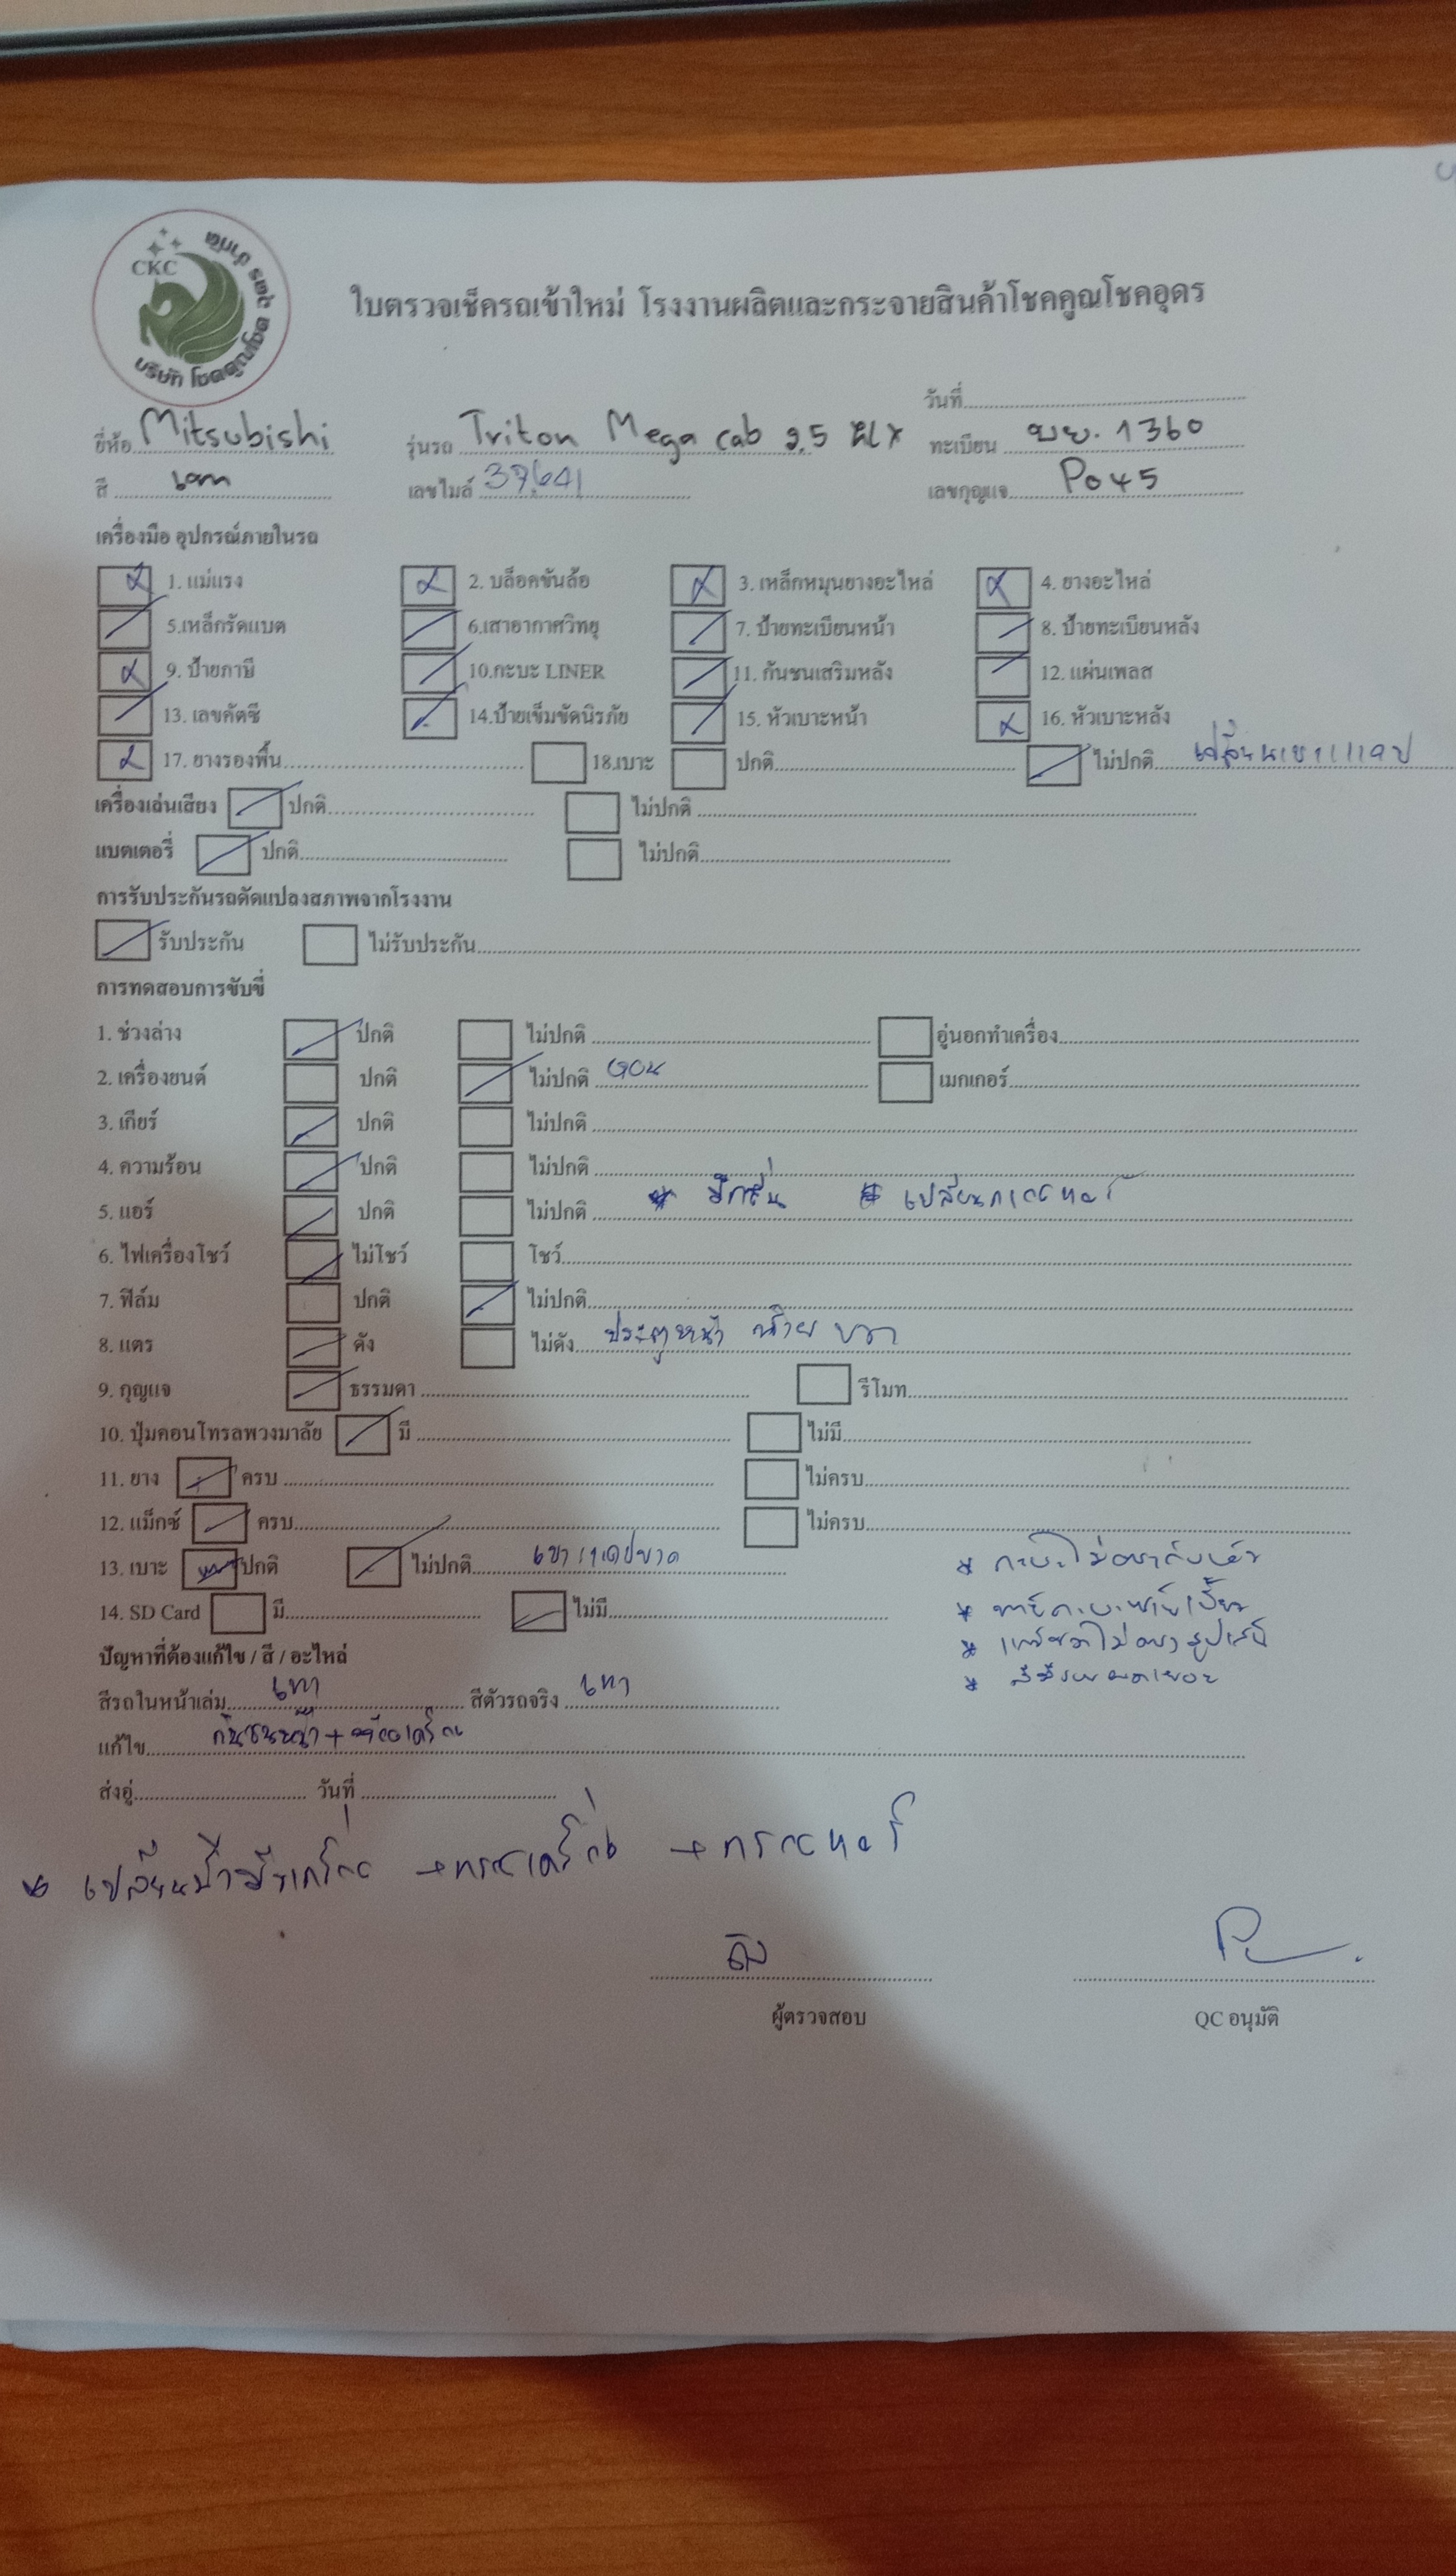 CKC
บริษัท โชคคูณโชค อุดร จำกัด
ใบตรวจเช็ครถเข้าใหม่ โรงงานผลิตและกระจายสินค้าโชคคูณโชคอุดร
วันที่
ยี่ห้อ Mitsubishi รุ่นรถ Triton Mega cab 2.5 ทะเบียน 1360
สี เทา เลขไมล์ เลขกุญแจ P045
เครื่องมือ อุปกรณ์ภายในรถ
1. แม่แรง 2. บล็อคขันล้อ 3. เหล็กหมุนยางอะไหล่ 4. ยางอะไหล่
5.เหล็กรัดแบต 6.เสาอากาศวิทยุ 7. ป้ายทะเบียนหน้า 8. ป้ายทะเบียนหลัง
9. ป้ายภาษี 10.กะบะ LINER 11. กันชนเสริมหลัง 12. แผ่นเพลส
13. เลขคัตซี 14.ป้ายเข็มขัดนิรภัย 15. หัวเบาะหน้า 16. หัวเบาะหลัง
17. ยางรองพื้น 18.เบาะ ปกติ ไม่ปกติ
เครื่องเล่นเสียง ปกติ ไม่ปกติ
แบตเตอรี่ ปกติ ไม่ปกติ
การรับประกันรถดัดแปลงสภาพจากโรงงาน
รับประกัน ไม่รับประกัน
การทดสอบการขับขี่
1. ช่วงล่าง ปกติ ไม่ปกติ อู่นอกทำเครื่อง
2. เครื่องยนต์ ปกติ ไม่ปกติ เมกเกอร์
3. เกียร์ ปกติ ไม่ปกติ
4. ความร้อน ปกติ ไม่ปกติ
5. แอร์ ปกติ ไม่ปกติ * มีกลิ่น
6. ไฟเครื่องโชว์ ไม่โชว์ โชว์
7. ฟิล์ม ปกติ ไม่ปกติ
8. แตร ดัง ไม่ดัง ประตูหน้า ซ้าย ขวา
9. กุญแจ ธรรมดา รีโมท
10. ปุ่มคอนโทรลพวงมาลัย มี ไม่มี
11. ยาง ครบ ไม่ครบ
12. แม็กซ์ ครบ ไม่ครบ
13. เบาะ ปกติ ไม่ปกติ เบาะแคปขาด
14. SD Card มี ไม่มี
ปัญหาที่ต้องแก้ไข / สี / อะไหล่
สีรถในหน้าเล่ม เทา สีตัวรถจริง เทา
แก้ไข กันชนหน้า +
ส่งอู่ วันที่
ผู้ตรวจสอบ QC อนุมัติ